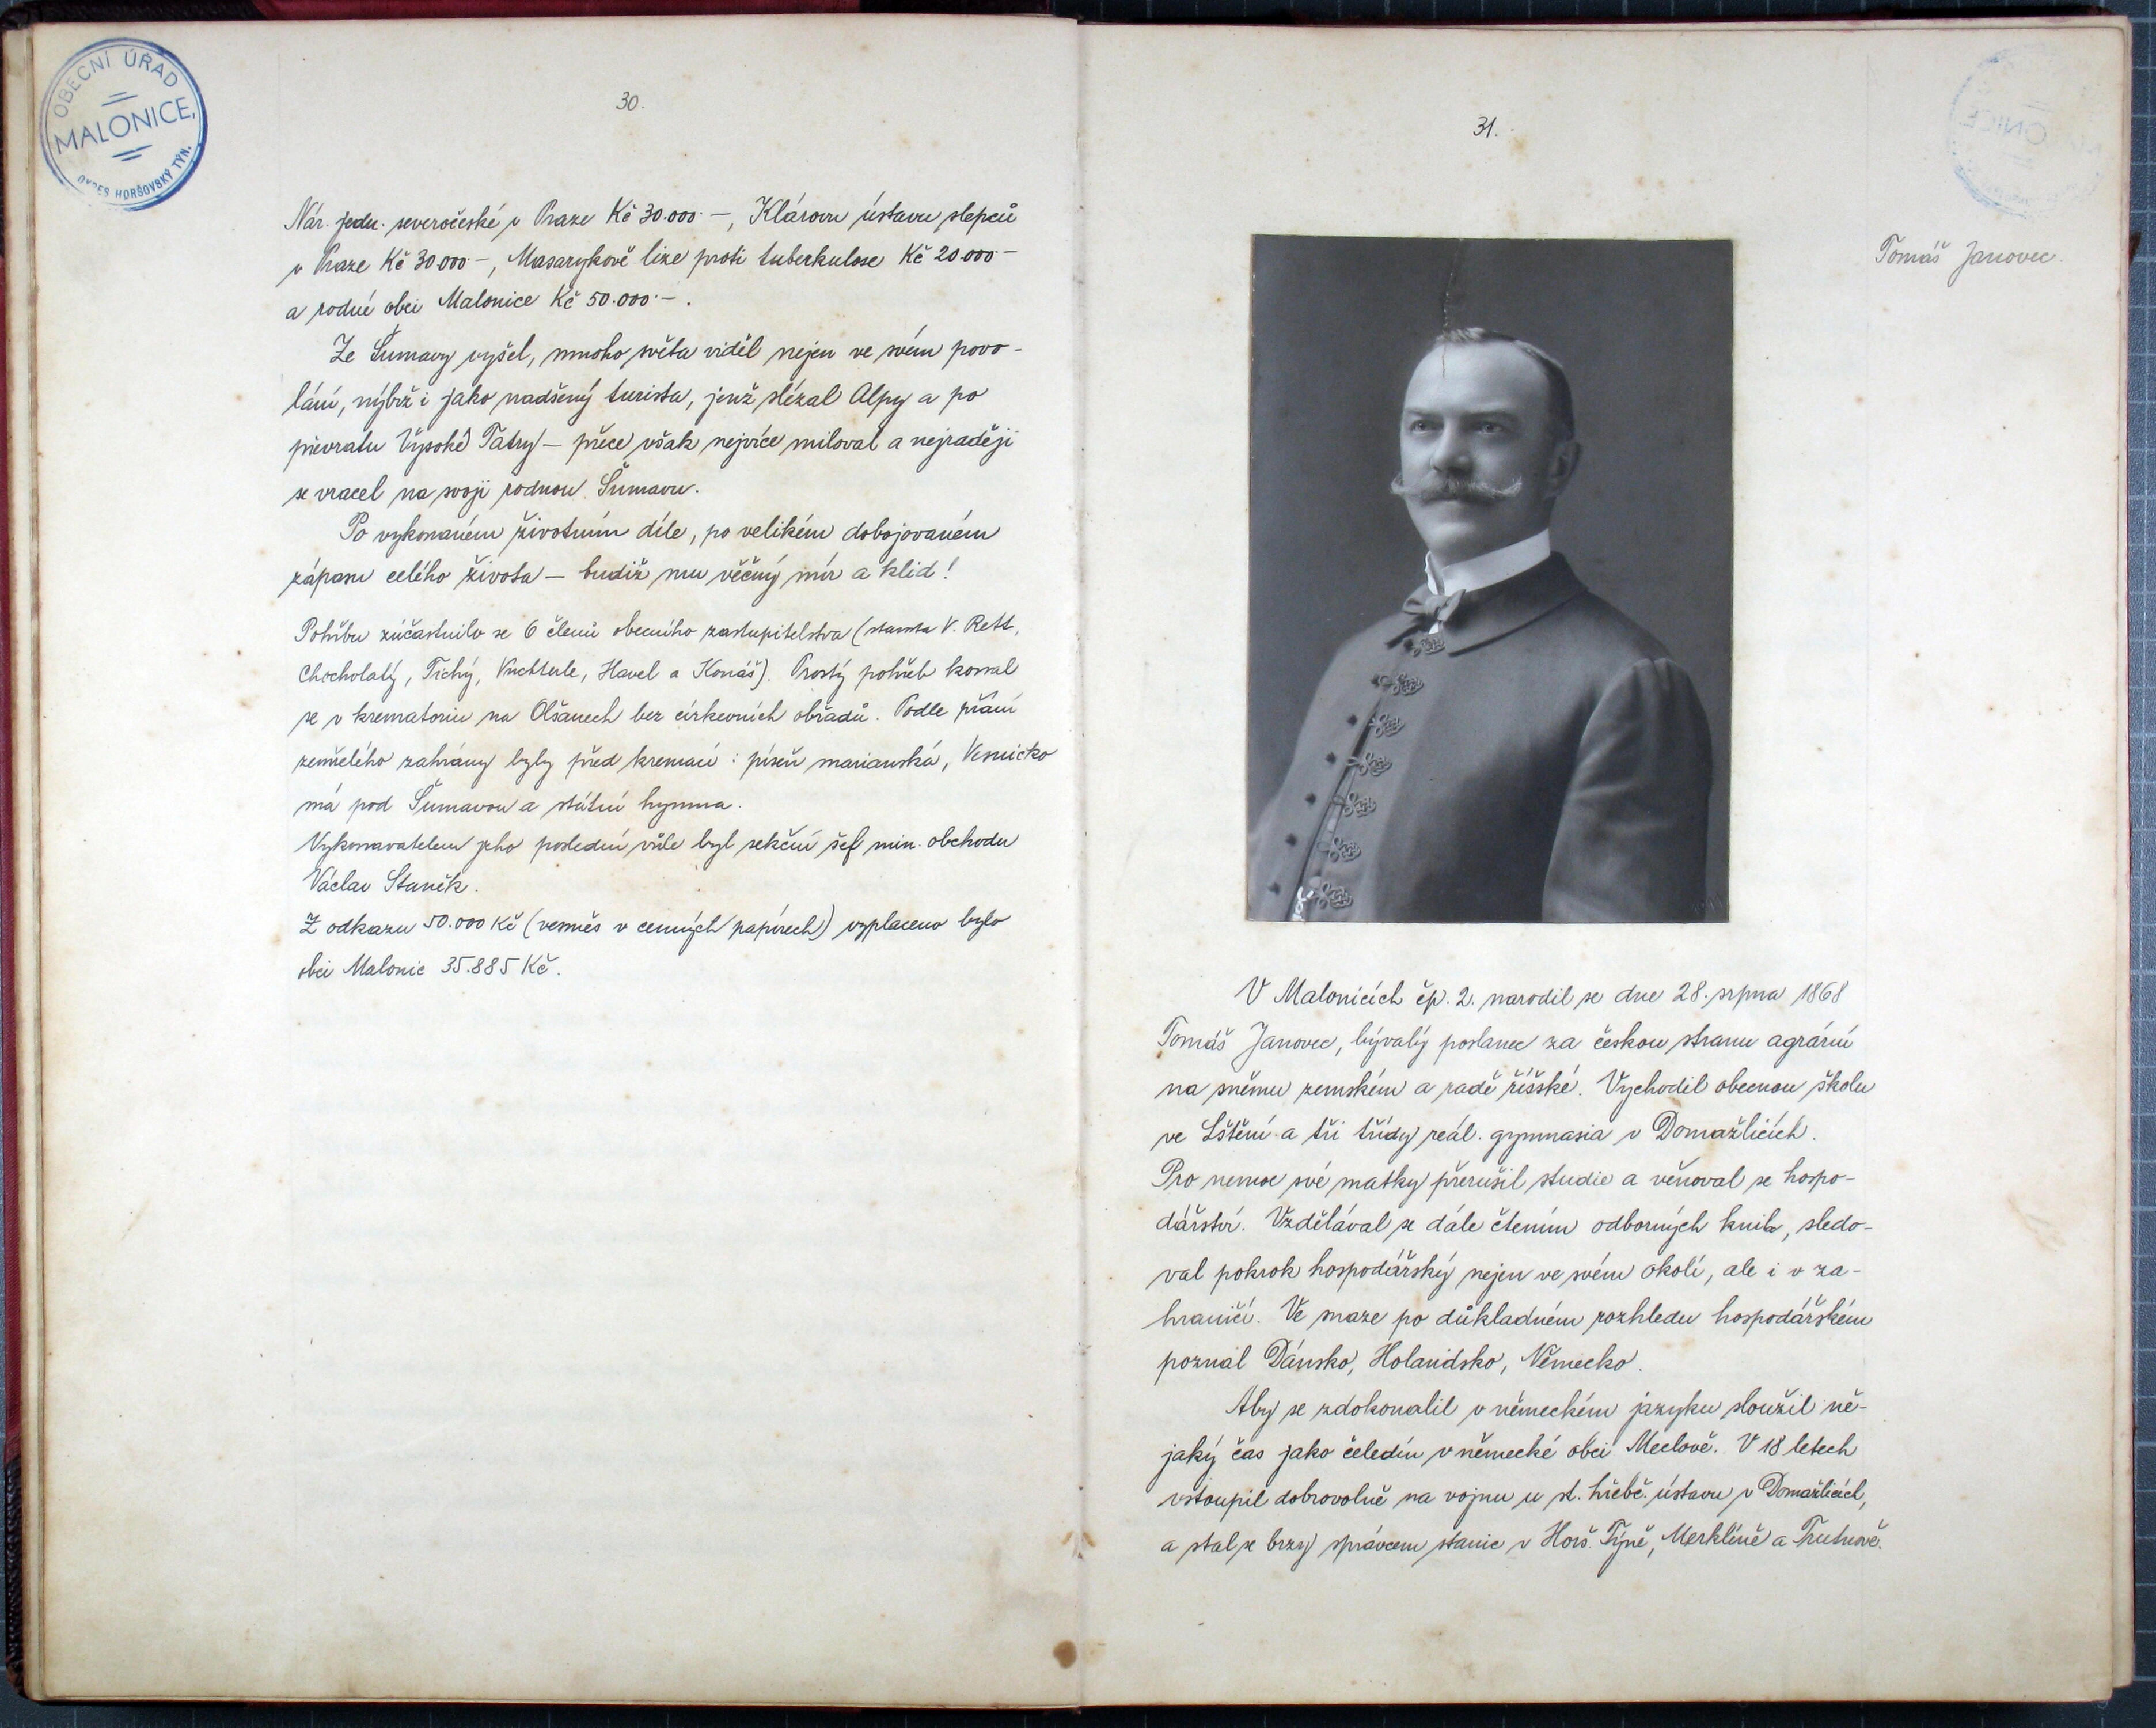 OBECNÍ ÚŘAD
MALONICE,
OKRES HORŠOVSKÝ TÝN.
30.
Nár. jedn. severočeské v Praze Kč 30.000·–, Klárovu ústavu slepců
v Praze Kč 30.000·–, Masarykově lize proti tuberkulose Kč 20.000·–
a rodné obci Malonice Kč 50.000·–.
Ze Šumavy vyšel, mnoho světa viděl nejen ve svém povo-
lání, nýbrž i jako nadšený turista, jenž slézal Alpy a po
převratu Vysoké Tatry – přece však nejvíce miloval a nejraději
se vracel na svoji rodnou Šumavu.
Po vykonaném životním díle, po velikém dobojovaném
zápasu celého života – budiž mu věčný mír a klid!
Pohřbu zúčastnilo se 6 členů obecního zastupitelstva (starosta V. Rett,
Chocholatý, Tichý, Kuchtule, Havel a Konáš). Prostý pohřeb konal
se v krematoriu na Olšanech bez církevních obřadů. Podle přání
zemřelého zahrány byly před kremací: píseň marianská, Vesničko
má pod Šumavou a státní hymna.
Vykonavatelem jeho poslední vůle byl sekční šéf min. obchodu
Václav Staněk.
Z odkazu 50.000 Kč (vesměs v cenných papírech) vyplaceno bylo
obci Malonic 35.885 Kč.
31.
Tomáš Janovec.
V Malonicích čp. 2. narodil se dne 28. srpna 1868
Tomáš Janovec, bývalý poslanec za českou stranu agrární
na sněmu zemském a radě říšské. Vychodil obecnou školu
ve Lštění a tři třídy reál. gymnasia v Domažlicích.
Pro nemoc své matky přerušil studie a věnoval se hospo-
dářství. Vzdělával se dále čtením odborných knih, sledo-
val pokrok hospodářský nejen ve svém okolí, ale i v za-
hraničí. Ve snaze po důkladném rozhledu hospodářském
poznal Dánsko, Holandsko, Německo.
Aby se zdokonalil v německém jazyku sloužil ně-
jaký čas jako čeledín v německé obci Meclově. V 18 letech
vstoupil dobrovolně na vojnu u st. hřebč. ústavu v Domažlicích,
a stal se brzy správcem stanic v Horš. Týně, Merklíně a Trutnově.